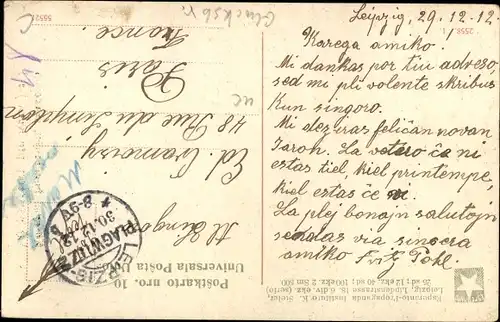 Leipzig, 29.12.12.
Karega amiko.
Mi dankas por tiu adreso,
sed mi pli volente skribus
kun sinjoro.
Mi deziras feliĉan novan
Jaron. La vetero ĉe ni
estas tiel, kiel printempe,
kiel estas ĉe vi.
La plej bonajn salutojn
sendas via sincera
amiko Fritz Pohl.
Esperanto-Propaganda Institute K. Stelzt,
Universala Posta Unio
Postkarto nro. 10
M. Singoro
Ed.
48 Rue du Simplon
Paris
France.
LEIPZIG-
PLAGWITZ
30.12.12
8-9V